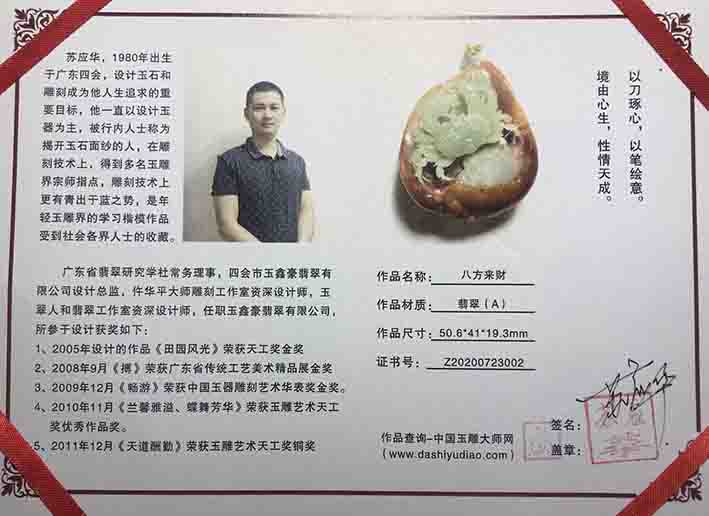 苏应华，1980年出生
于广东四会，设计玉石和
雕刻成为他人生追求的重
要目标，他一直以设计玉
器为主，被行内人士称为
揭开玉石面纱的人，在雕
刻技术上，得到多名玉雕
界宗师指点，雕刻技术上
更有青出于蓝之势，是年
轻玉雕界的学习楷模作品
受到社会各界人士的收藏。
以刀琢心，以笔绘意。
境由心生，性情天成。
广东省翡翠研究学社常务理事，四会市玉鑫豪翡翠有
限公司设计总监，仵华平大师雕刻工作室资深设计师，玉
翠人和翡翠工作室资深设计师，任职玉鑫豪翡翠有限公司，
所参于设计获奖如下：
1、2005年设计的作品《田园风光》荣获天工奖金奖
2、2008年9月《搏》荣获广东省传统工艺美术精品展金奖
3、2009年12月《畅游》荣获中国玉器雕刻艺术华表奖金奖。
4、2010年11月《兰馨雅溢、蝶舞芳华》荣获玉雕艺术天工
奖优秀作品奖。
5、2011年12月《天道酬勤》荣获玉雕艺术天工奖铜奖
作品名称：八方来财
作品材质：翡翠（A）
作品尺寸：50.6*41*19.3mm
证书号：Z20200723002
作品查询-中国玉雕大师网
(www.dashiyudiao.com)
签名：
盖章：